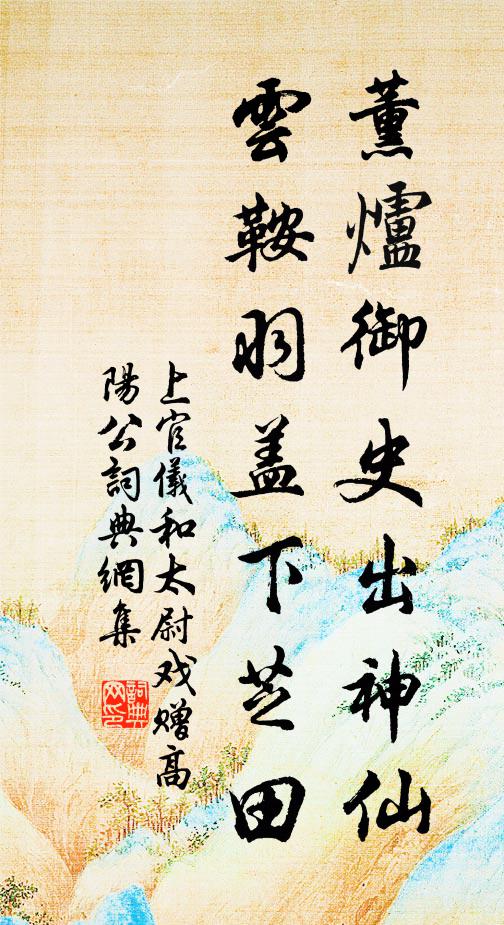 薰爐御史出神仙
雲鞍羽盖下芝田
上官儀和太尉戏赠高
陽公詞典網集
詞典
网印